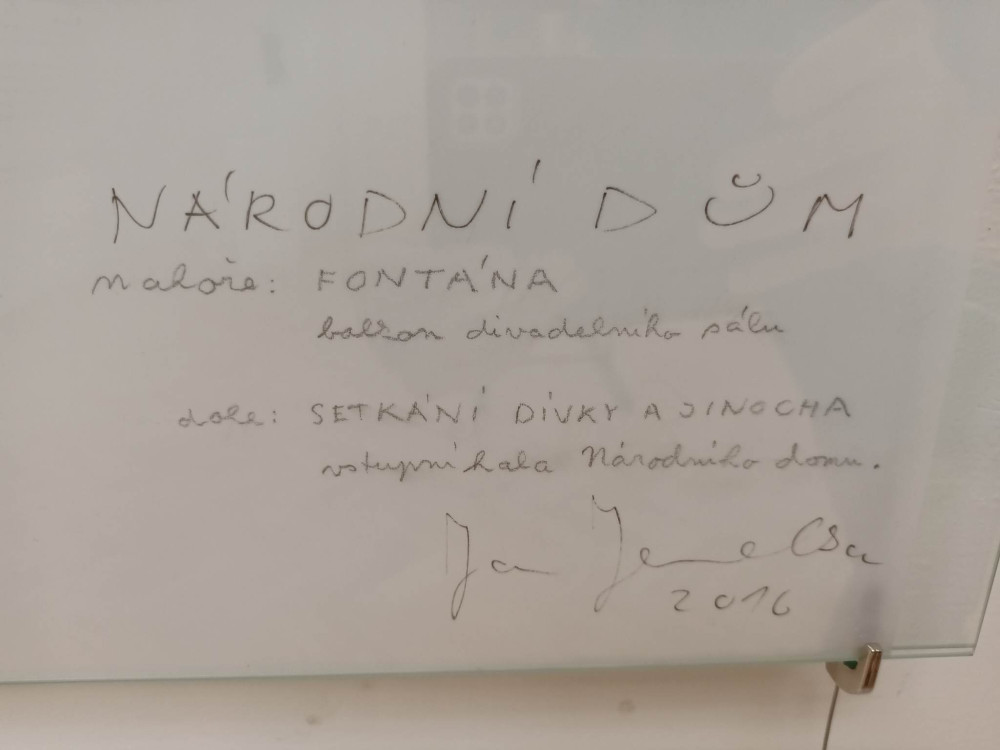 NÁRODNÍ DŮM
nahoře: FONTÁNA
balkon divadelního sálu
dole: SETKÁNÍ DÍVKY A JINOCHA
vstupní hala Národního domu.
Jan
2016